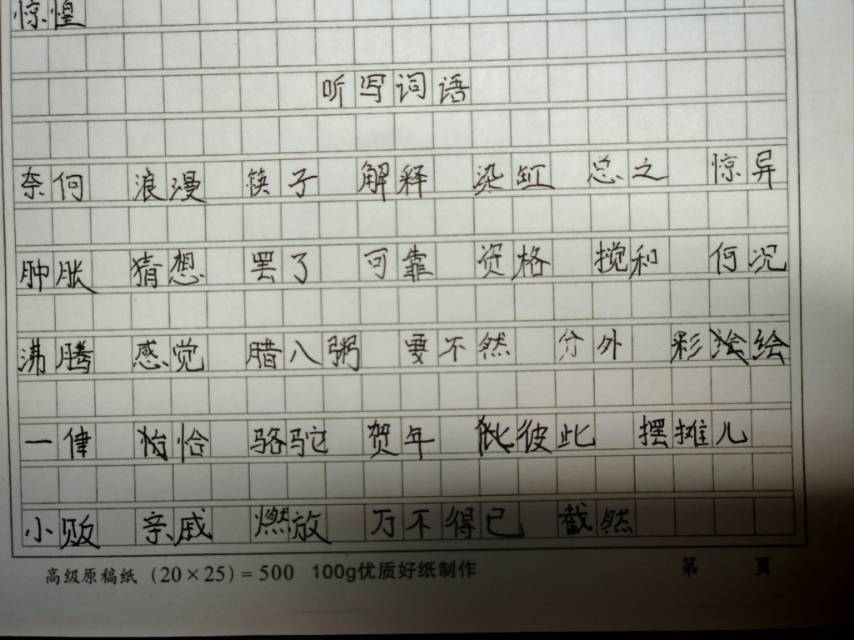 惊惶
听写词语
奈何 浪漫 筷子 解释 染缸 总之 惊异
肿胀 猜想 罢了 可靠 资格 搅和 何况
沸腾 感觉 腊八粥 要不然 分外 彩绘
一律 恰恰 骆驼 贺年 彼此 摆摊儿
小贩 亲戚 燃放 万不得已 截然
高级原稿纸 (20×25)=500 100g优质好纸制作 第 页